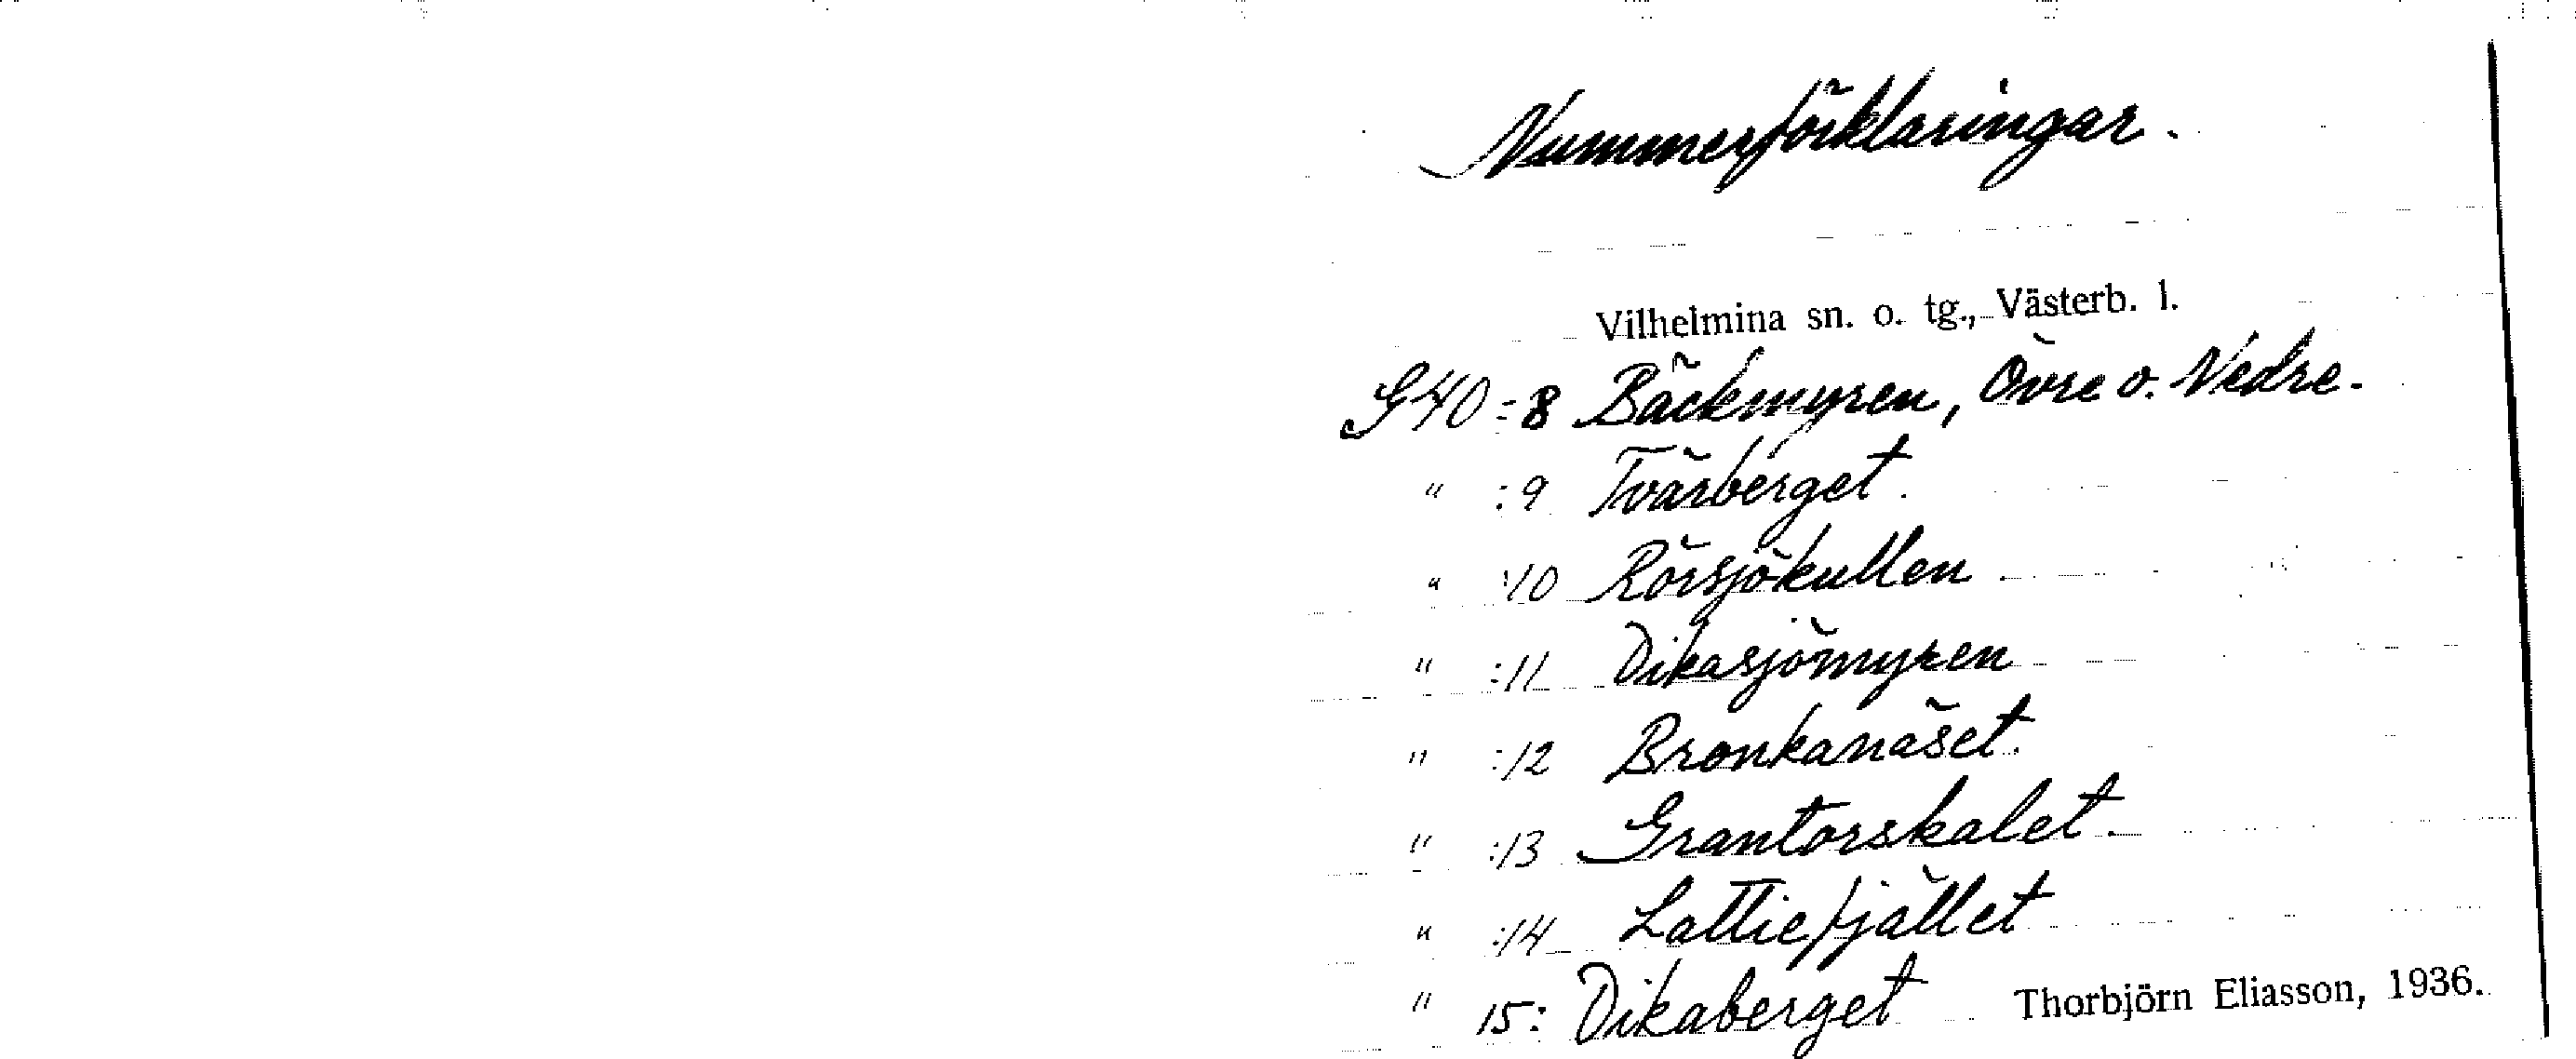 Nummerförklaringar.
Vilhelmina sn. o. tg., Västerb. l.
G40:8 Bäckmyren, Övre o. Nedre.
" :9 Tvärberget.
" :10 Rörsjökullen
" :11 Dikasjömyren
" :12 Bronkanäset.
" :13 Grantorskalet.
" :14 Lattiefjället
" 15: Dikaberget Thorbjörn Eliasson, 1936.